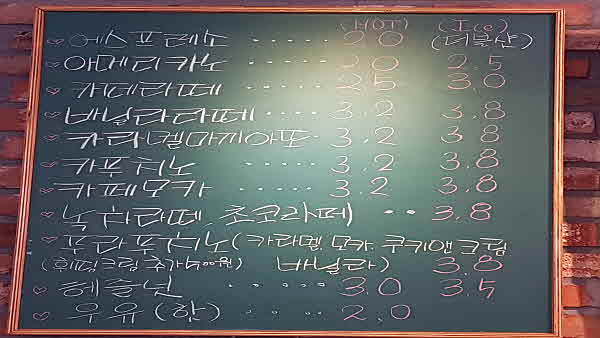 (HOT) (Ice)
에스프레소 ····· 2.0 (더블샷)
아메리카노 ····· 2.0 2.5
카페라떼 ····· 2.5 3.0
바닐라라떼 ···· 3.2 3.8
카라멜마끼아또 · 3.2 3.8
카푸치노 ····· 3.2 3.8
카페모카 ····· 3.2 3.8
녹차라떼 초코라떼) ·· 3.8
푸라푸치노(카라멜 모카 쿠키앤크림
(휘핑크림 추가 500원) 바닐라) 3.8
헤즐넛 ····· 3.0 3.5
우유 (핫) ···· 2.0